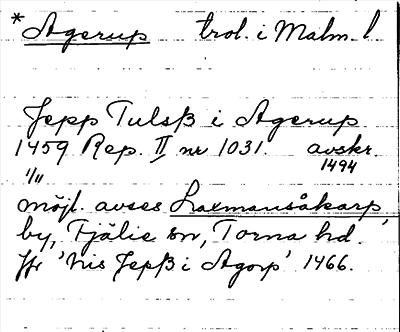 * Agerup trol. i Malm. l
Jepp Tulsß i Agerup
1459 Rep. II nr 1031. avskr.
1/11 1494
möjl. avses Laxmansåkarp,
by, Fjälie sn, Torna hd.
Jfr 'Nis Jepß i Agorp' 1466.